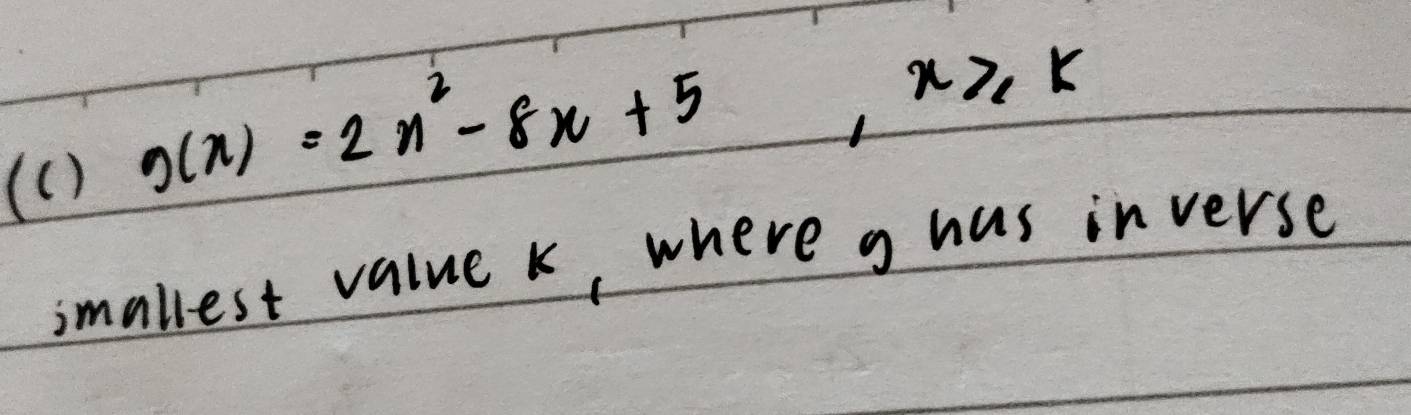 (c) g(x) = 2x² - 8x + 5 , x ⩾ k
smallest value k, where g has inverse